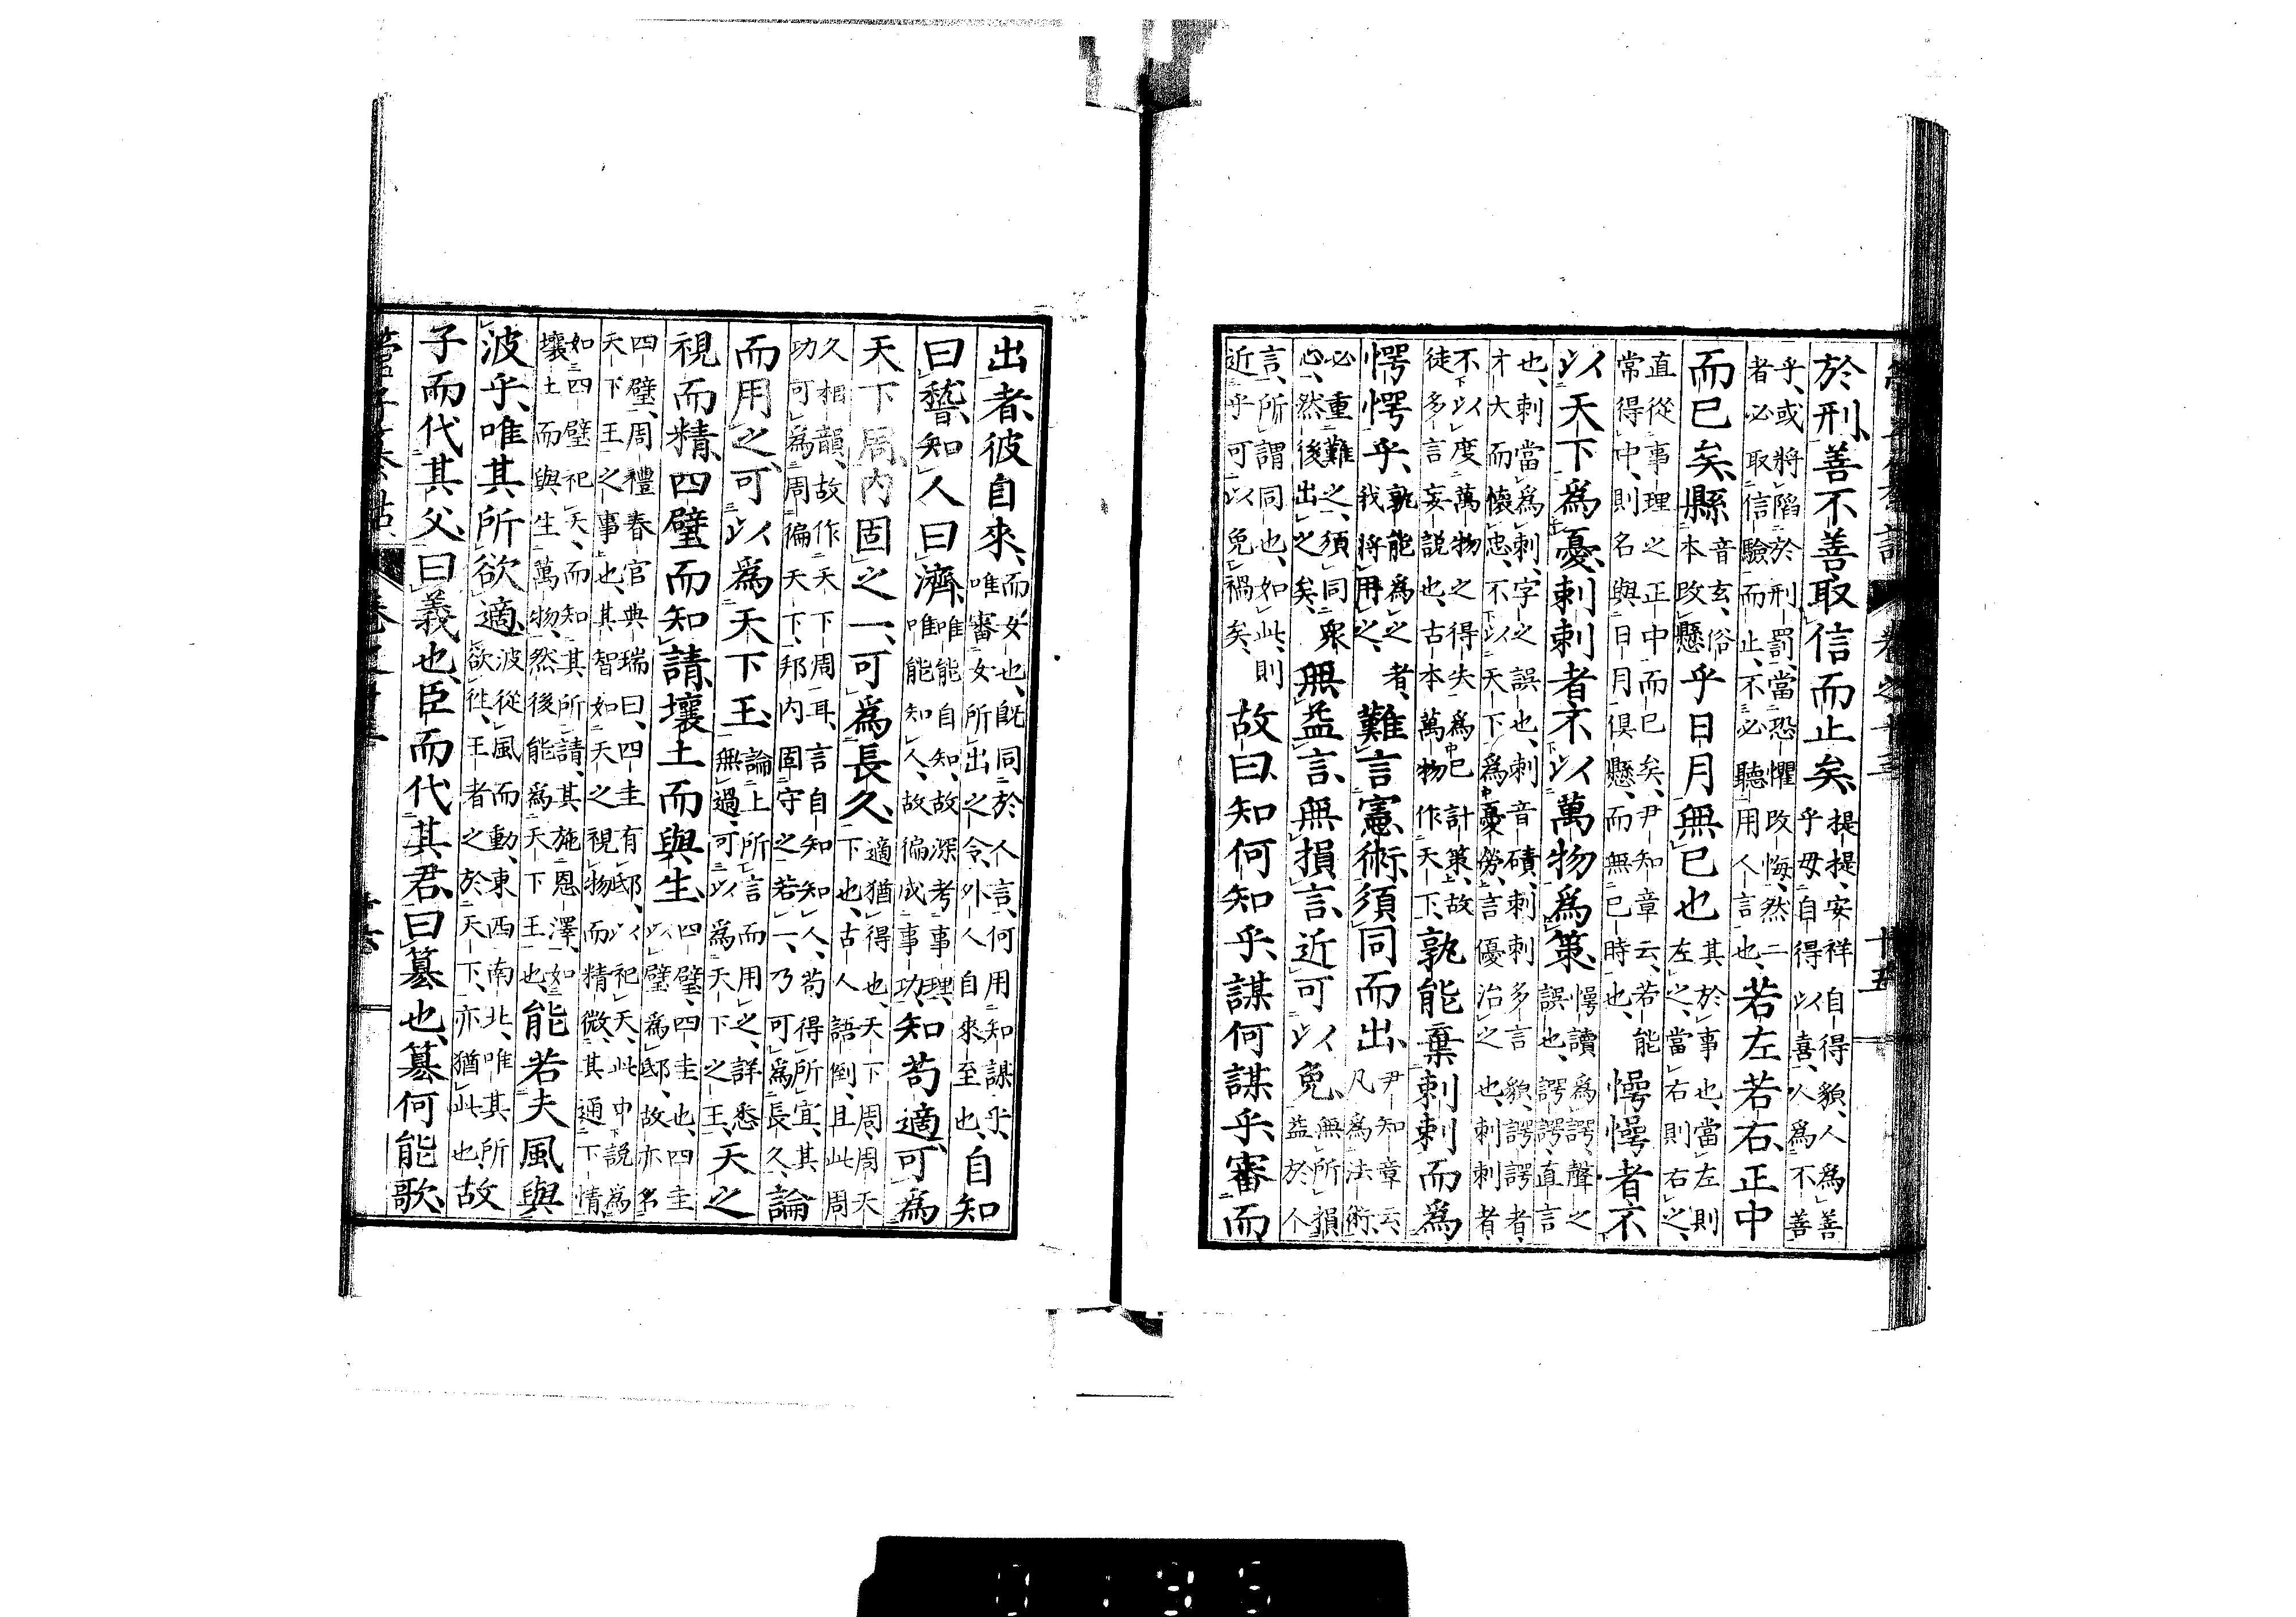 管子纂詁 卷之十三 十五
於刑、善不善取信而止矣、提提、安祥自得貌、人爲善
乎毋自得以喜、人爲不善
乎、或將陷於刑罰、當恐懼改悔、然二
者必取信驗而止、不必聽用人言也、若左若右、正中
而已矣、縣音玄、俗
本改懸乎日月無已也其於事也、當左則
左之、當右則右之、
直從事理之正中而已矣、尹知章云、若能
常得中、則名與日月倶懸、而無已時也、愕愕者不
以天下爲憂、剌剌者不以萬物爲策、愕讀爲諤、聲之
誤也、諤諤、直言
也、剌當爲刺、字之誤也、刺音磧、刺刺多言貌、諤諤者、
才大而懷忠、不以天下爲憂勞、言優治之也、刺刺者
不以度萬物之得失爲已計策、故
徒多言妄説也、古本萬物作天下、孰能棄剌剌而爲
愕愕乎、孰能爲之者、
我將用之、難言憲術、須同而出、尹知章云、
凡爲法術、
必重難之、須同衆
心、然後出之矣、無益言、無損言、近可以免、無所損
益於人
言、所謂同也、如此、則
近乎可以免禍矣、故曰、知何知乎、謀何謀乎、審而
出者、彼自來、而、女也、既同於人言、何用知謀乎、
唯審女所出之令、外人自來至也、自知
曰稽、知人曰濟、唯能自知、故深考事理、
唯能知人、故徧成事功、知苟適、可爲
天下周、内固之一、可爲長久、適猶得也、天下周、周天
下也、古人語倒、且此周
久相韻、故作天下周耳、言自知知人、苟得所宜、其
功可爲周徧天下、邦内固守之若一、乃可爲長久、論
而用之、可以爲天下王、論上所言而用之、詳悉
無過、可以爲天下之王、天之
視而精、四璧而知請、壤土而與生、四璧、四圭也、四圭
以璧爲邸、故亦名
四璧、周禮春官典瑞曰、四圭有邸、以祀天、此中説爲
天下王之事也、其智如天之視物而精微、其通下情
如四璧祀天、而知其所請、其施恩澤、如
壤土而與生萬物、然後能爲天下王也、能若夫風與
波乎、唯其所欲適、波從風而動、東西南北、唯其所
欲往、王者之於天下、亦猶此也、故
子而代其父、曰義也、臣而代其君、曰簒也、簒何能歌、
管子纂詁 卷之十三 十六
0195